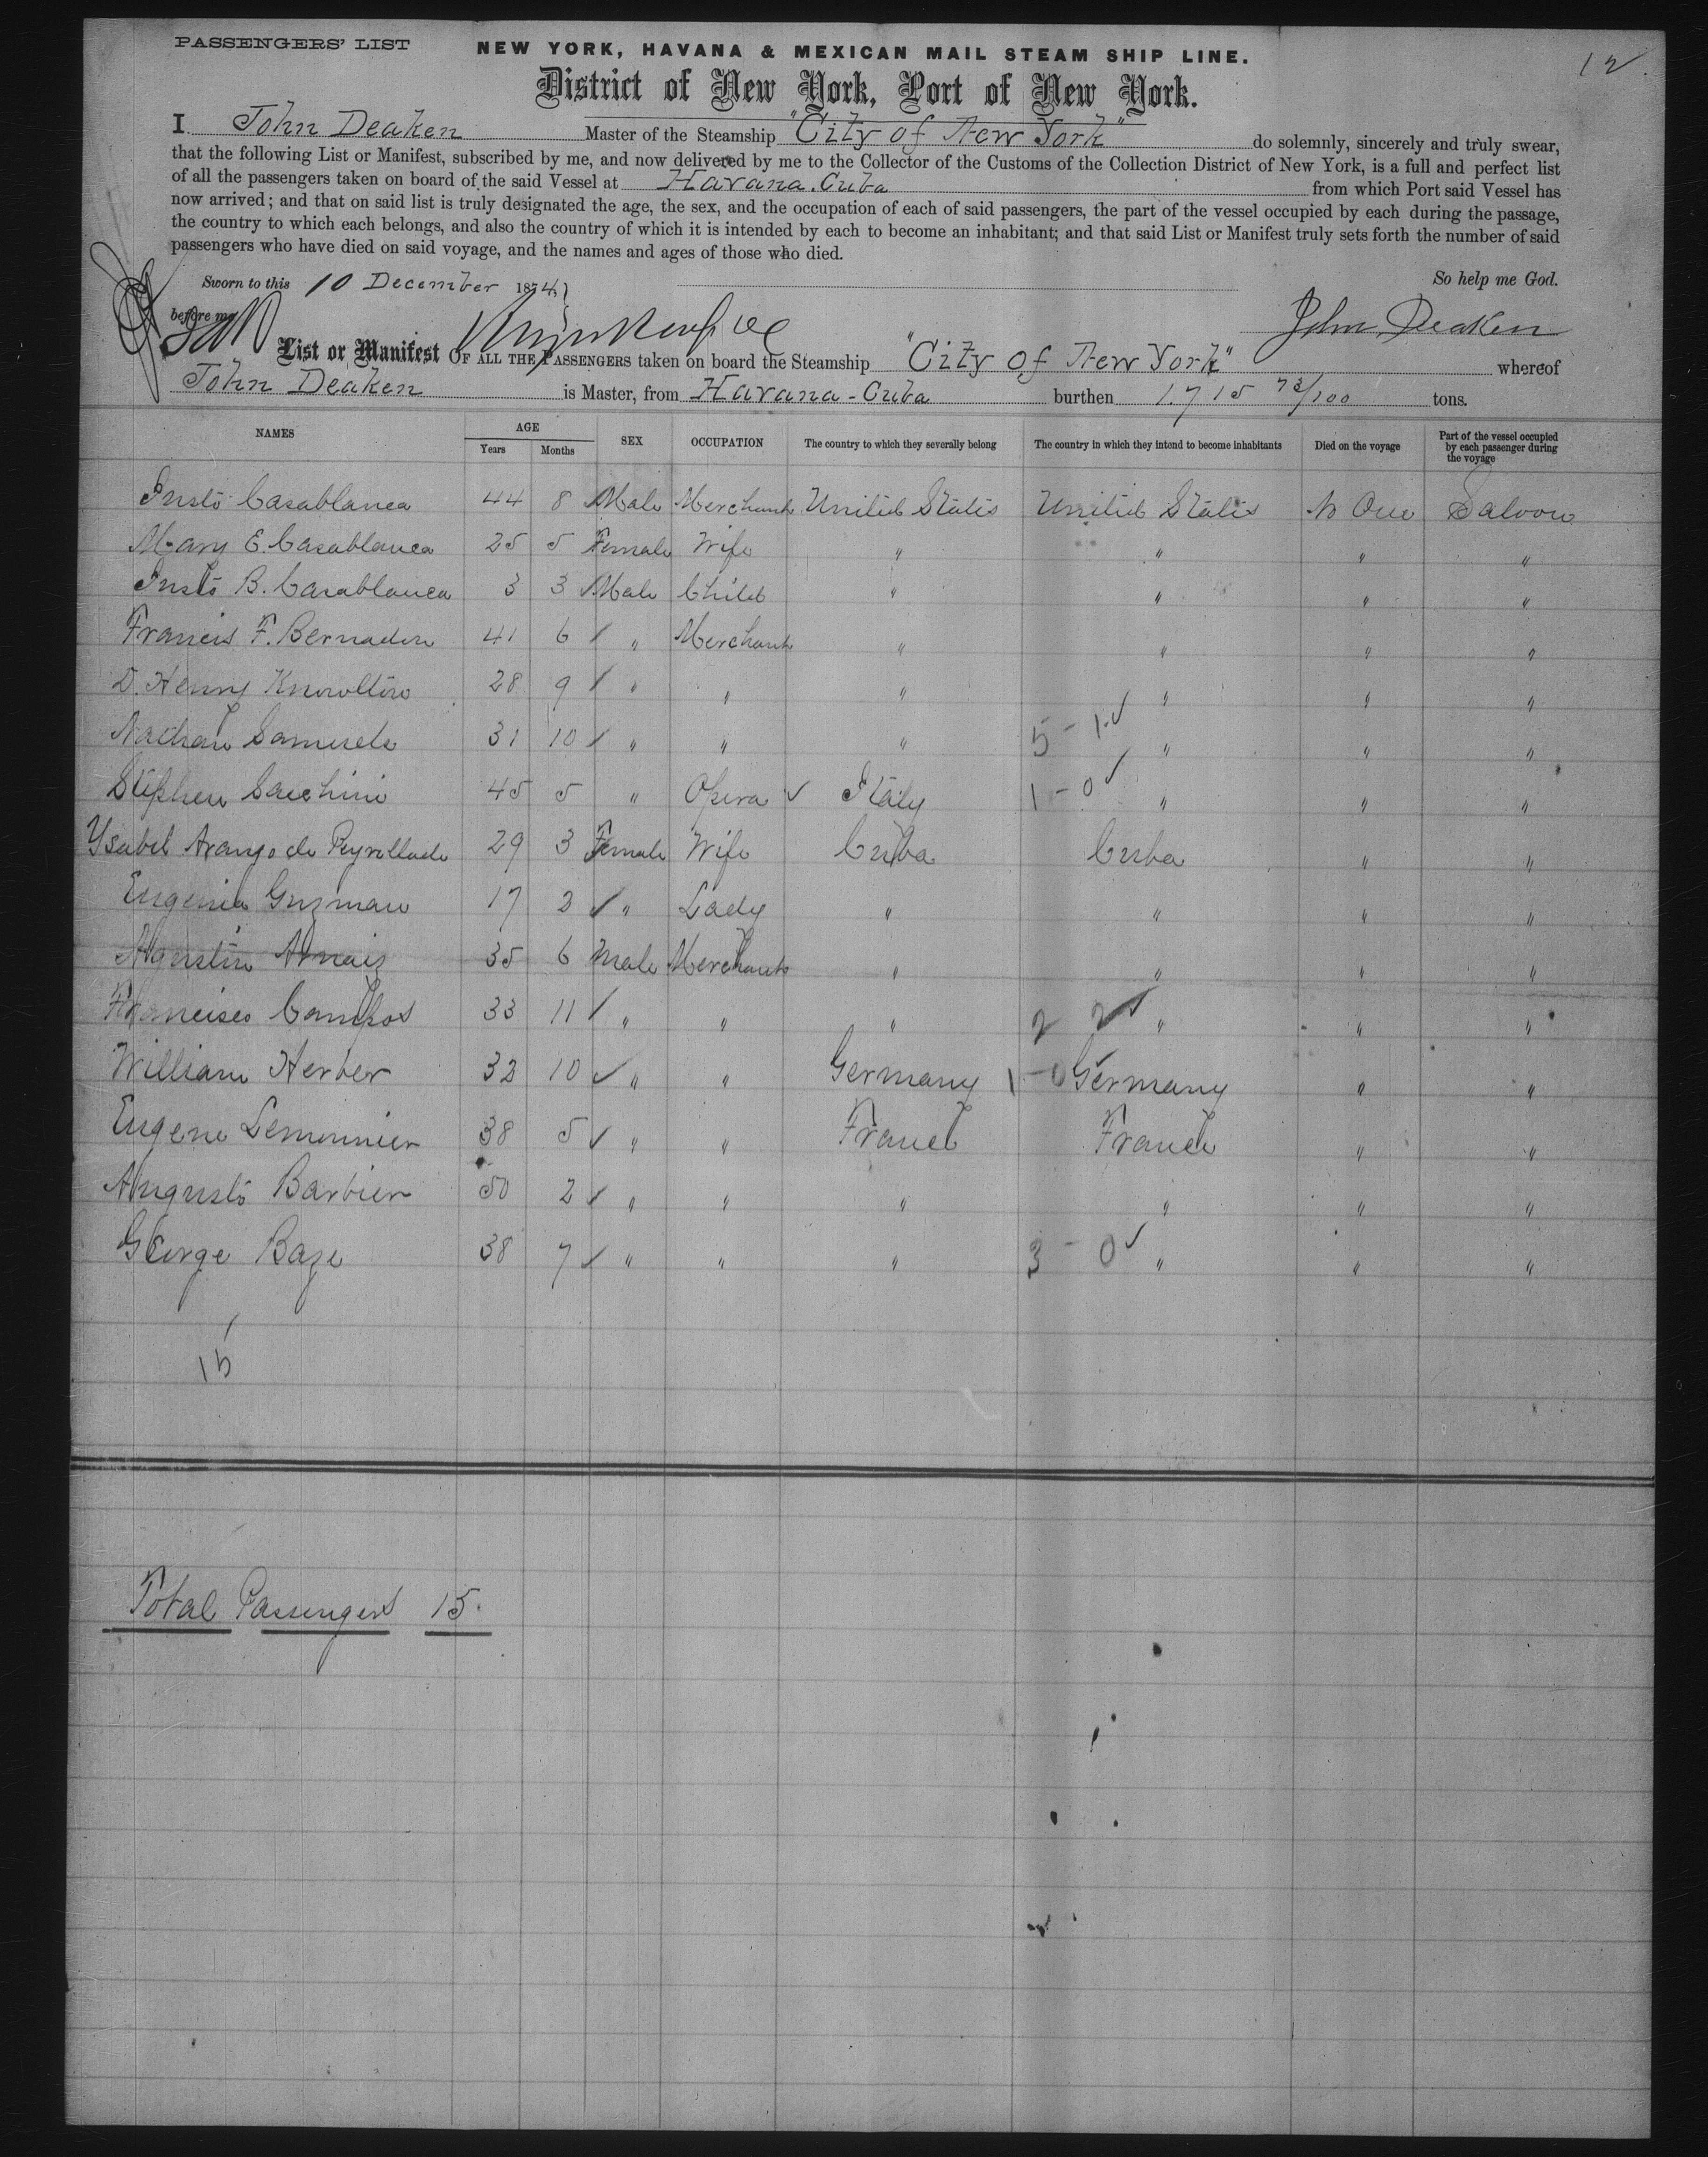 PASSENGERS' LIST
NEW YORK, HAVANA & MEXICAN MAIL STEAM SHIP LINE.
12
District of New York, Port of New York.
I John Deaken Master of the Steamship "City of New York" do solemnly, sincerely and truly swear,
that the following List or Manifest, subscribed by me, and now delivered by me to the Collector of the Customs of the Collection District of New York, is a full and perfect list
of all the passengers taken on board of the said Vessel at Havana. Cuba from which Port said Vessel has
now arrived; and that on said list is truly designated the age, the sex, and the occupation of each of said passengers, the part of the vessel occupied by each during the passage,
the country to which each belongs, and also the country of which it is intended by each to become an inhabitant; and that said List or Manifest truly sets forth the number of said
passengers who have died on said voyage, and the names and ages of those who died.
Sworn to this 10 December 1874 So help me God.
before me John Deaken
List or Manifest OF ALL THE PASSENGERS taken on board the Steamship "City of New York" whereof
John Deaken is Master, from Havana - Cuba burthen 1.715 73/100 tons.
NAMES AGE Years Months SEX OCCUPATION The country to which they severally belong The country in which they intend to become inhabitants Died on the voyage Part of the vessel occupied by each passenger during the voyage
Justo Casablanca 44 8 Male Merchant United States United States None Saloon
Mary E. Casablanca 25 5 Female Wife " " " "
Justo B. Casablanca 3 3 Male Child " " " "
Francis F. Bernadin 41 6 " Merchant " " " "
D. Henry Knowlton 28 9 " " " " " "
Nathan Samuels 31 10 " " " 5 - 1 " " "
Stephen Sacchini 45 5 " Opera Italy 1 - 0 " " "
Ysabel Arango de Peyrellade 29 3 Female Wife Cuba Cuba " "
Eugenia Guzman 17 2 " Lady " " " "
Agustin Arnaiz 35 6 Male Merchant " " " "
Francisco Campos 33 11 " " " 2 2 " " "
William Herber 32 10 " " Germany 1 - 0 Germany " "
Eugene Lemonnier 38 5 " " France France " "
Augusto Barbier 50 2 " " " " " "
George Baze 38 7 " " " 3 - 0 " " "
15
Total Passengers 15.